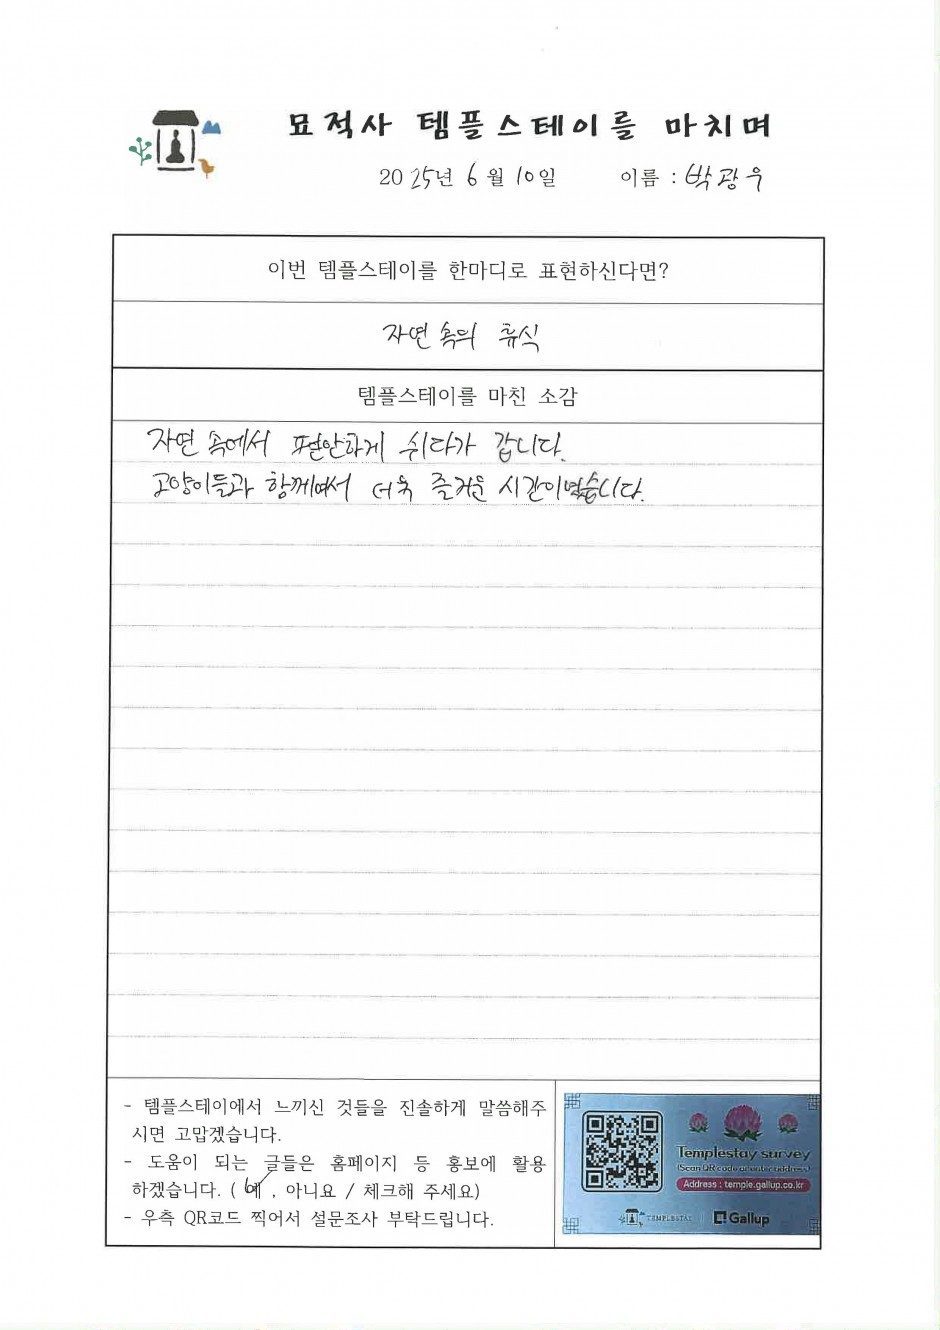 묘적사 템플스테이를 마치며
2025년 6월 10일 이름 : 박광우
이번 템플스테이를 한마디로 표현하신다면?
자연 속의 휴식
템플스테이를 마친 소감
자연 속에서 편안하게 쉬다가 갑니다.
고양이들과 함께여서 더욱 즐거운 시간이었습니다.
- 템플스테이에서 느끼신 것들을 진솔하게 말씀해주
시면 고맙겠습니다.
- 도움이 되는 글들은 홈페이지 등 홍보에 활용
하겠습니다. ( 예 , 아니요 / 체크해 주세요)
- 우측 QR코드 찍어서 설문조사 부탁드립니다.
Templestay survey
(Scan QR code or enter address)
Address : temple.gallup.co.kr
TEMPLESTAY Gallup